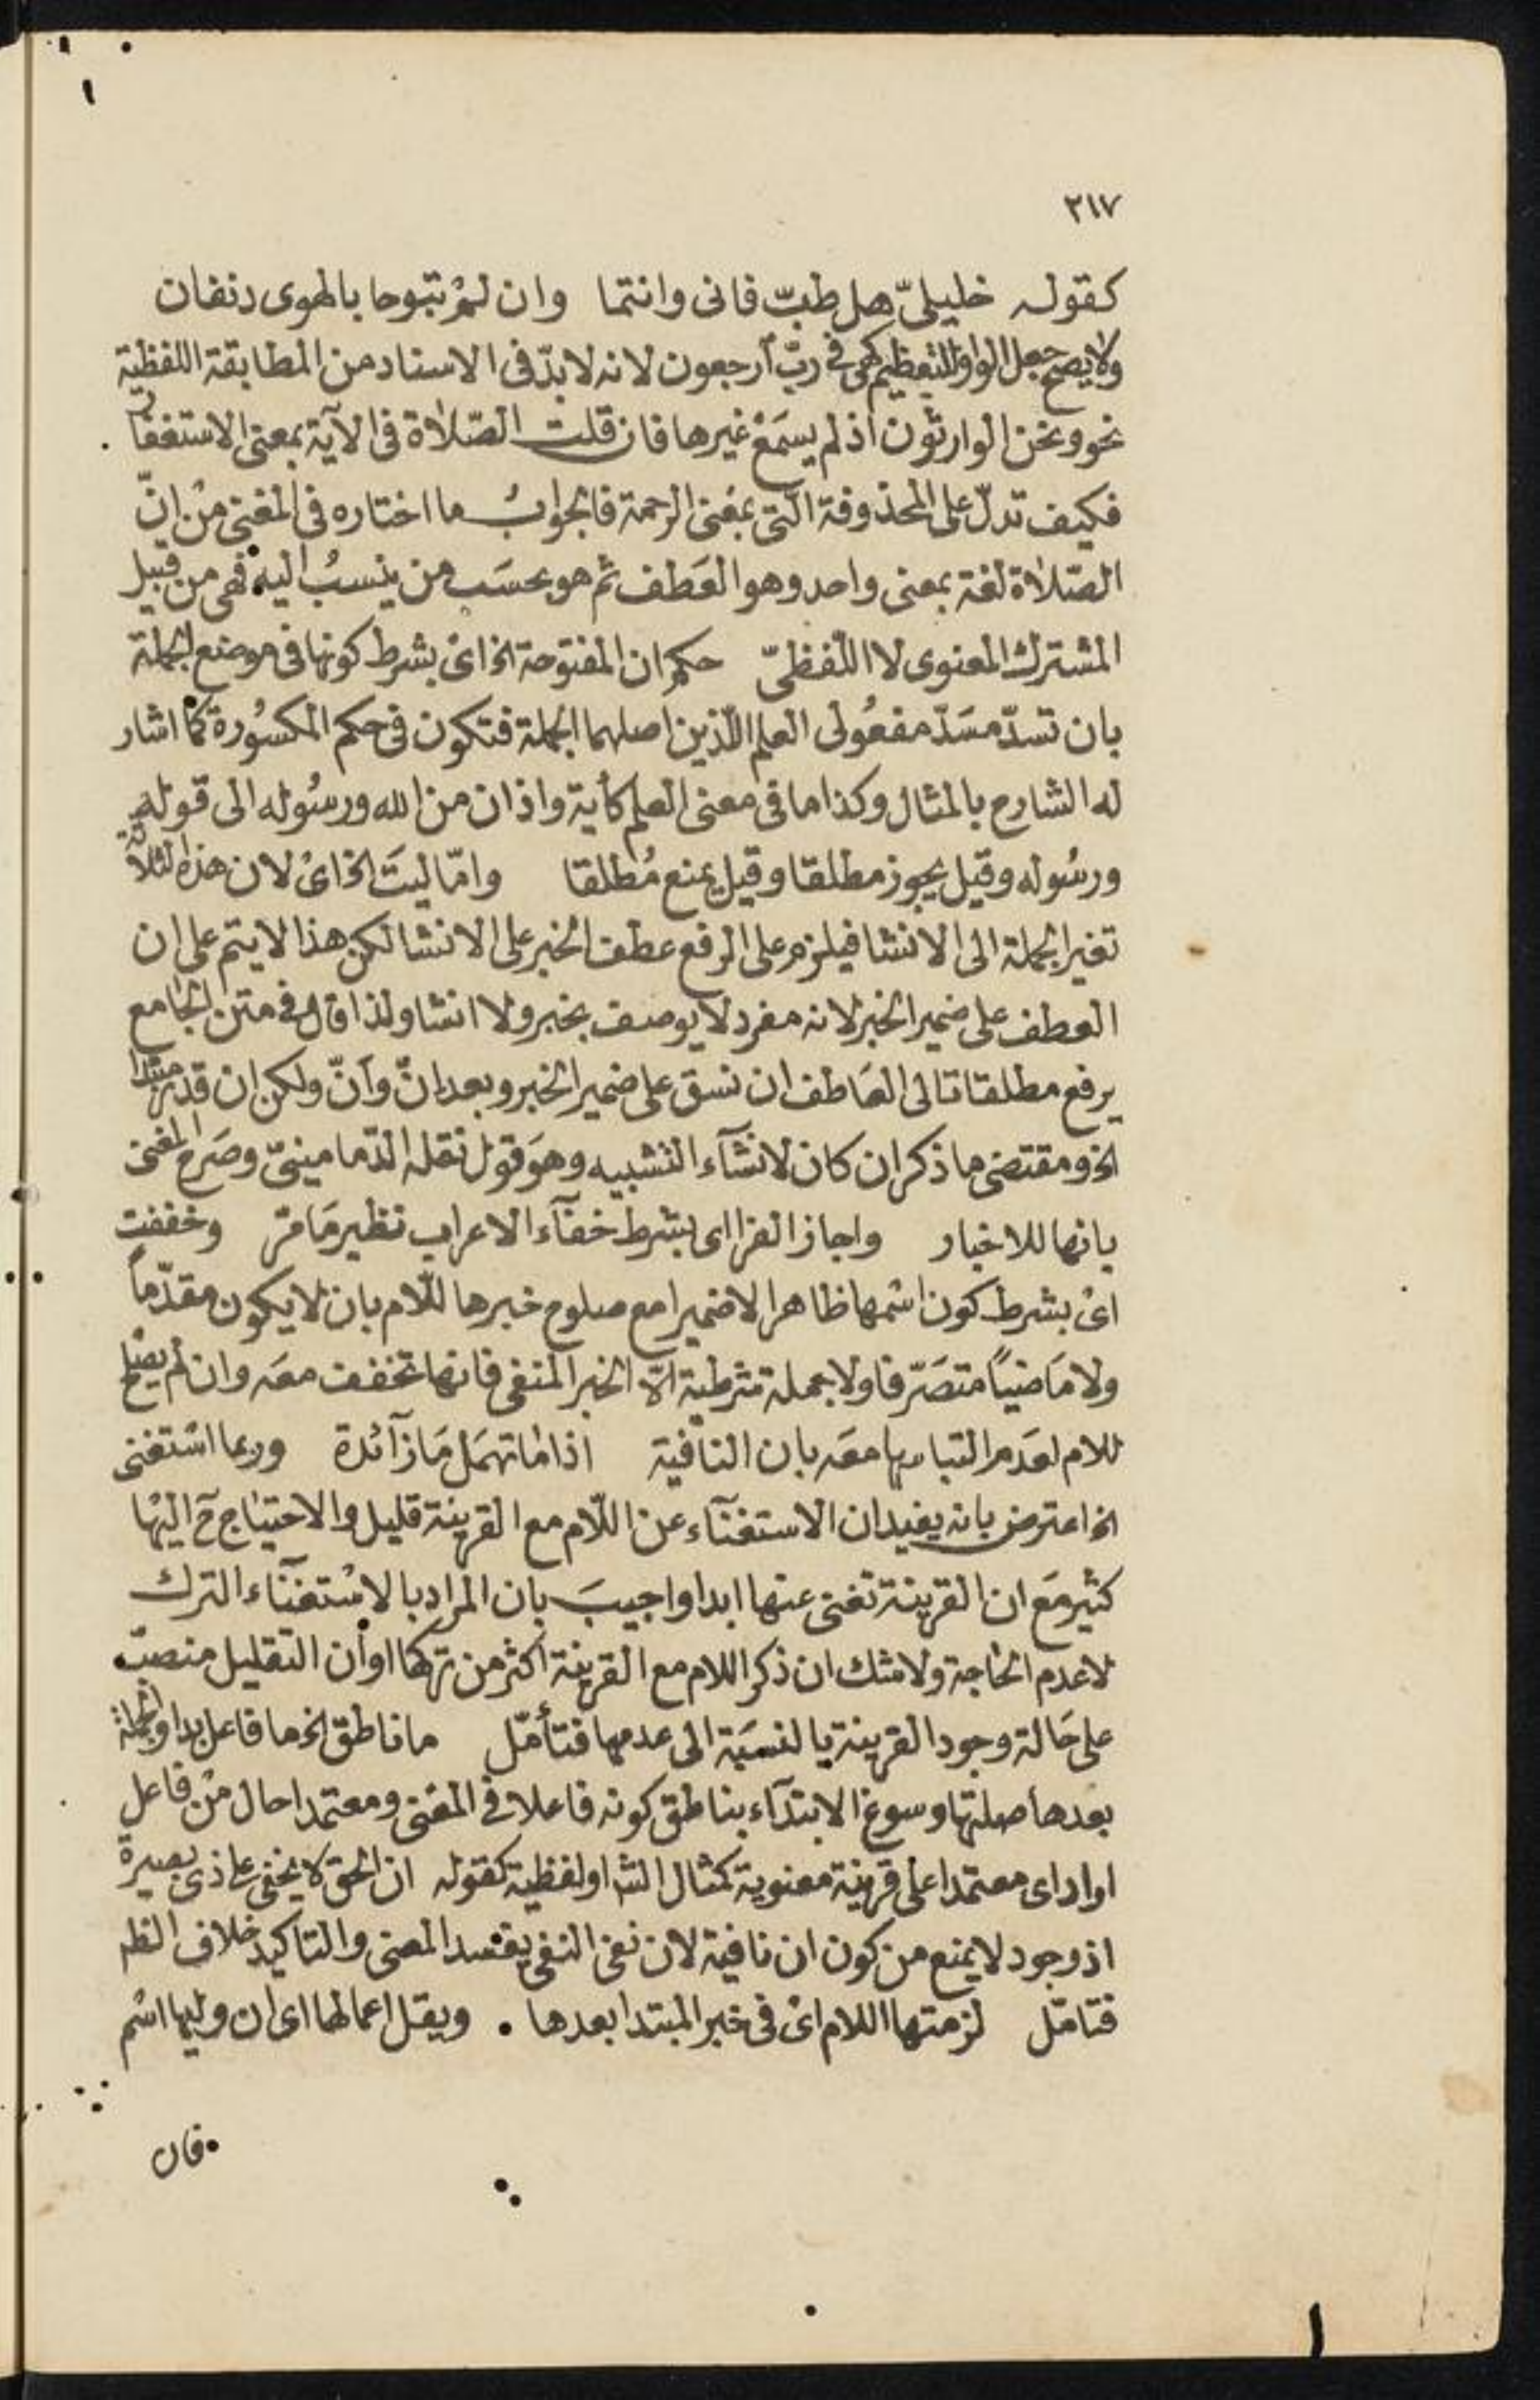 ٣١٧
كقوله خليليّ هل طبّ فانى وانتما وان لمْ تبوحا بالهوى دنفان
ولا يصح جعل الواو للتعظيم كهى في ربّ ارجعون لانه لا بدّ فى الاسناد من المطابقة اللفظية
نحو ونحن الوارثون اذ لم يسمَعْ غيرها فان قلت الصّلاة فى الآية بمعنى الاستغفار
فكيف تدلّ على المحذوفة الّتى بمَعْنى الرحمة فالجوابُ ما اختاره فى المغنى منْ انّ
الصّلاة لغة بمعنى واحد وهو العَطف ثم هو بحسَب من ينسبُ اليه فهى من قبيل
المشترك المعنوى لا اللّفظىّ حكم ان المفتوحة الخ اىْ بشرط كونها فى موضع الجملة
بان تسدّ مسَدّ مفعُولى العلم اللّذين اصلهما الجملة فتكون فى حكم المكسُورة كما اشار
له الشارح بالمثال وكذا ما فى معنى العلم كأية واذان من الله ورسُوله الى قوله
ورسُوله وقيل يجوز مطلقا وقيل يمنع مُطلقا وامّا ليتَ الخ اىْ لان هذه الثلاثة
تغير الجملة الى الانشا فيلزم على الرفع عطف الخبر على الانشا لكن هذا لا يتم على ان
العطف على ضمير الخبر لانه مفرد لا يوصف بخبر ولا انشا ولذا قال فى متن الجامع
يرفع مطلقا تالى العَاطف ان نسق على ضمير الخبر وبعد انّ وأنّ ولكن ان قدر مبتدا
الخ ومقتضى ما ذكر ان كان لانشآء التشبيه وهوَ قول نقله الدّمامينىّ وصَرح المغنى
بانها للاخبار واجاز الفرا اى بشرط خفآء الاعراب نظير مَا مرّ وخففت
اىْ بشرط كون اسْمها ظاهرا لا ضميرا مع صلوح خبرها للّام بان لا يكون مقدّماً
ولا مَاضياً متصَرّفا ولا جملة شرطية الّا الخبر المنفى فانها تخفف معَه وان لم يصْلح
للام لعَدم التباسها معَه بان النافية اذا مَا تهمَل مَا زآئدة وربما اسْتغنى
الخ اعترض بانه يفيد ان الاستغنآء عن اللّام مع القرينة قليل والاحتيَاج حَ اليْها
كثير مَع ان القرينة تغنى عنها ابدا واجيبَ بان المراد بالاسْتغنآء الترك
لا عدم الحَاجة ولا شك ان ذكر اللام مع القرينة اكثر من تركها او أن التقليل منصبّ
على حَالة وجود القرينة بالنسبَة الى عدمها فتأمّل ما ناطق الخ ما فاعل بدا والجملة
بعدها صلتها وسوغ الابتدآء بناطق كونه فاعلا فى المعْنى ومعتمدا حال منْ فاعل
اواراى معتمدا على قرينة معنوية كمثال الشا اولفظية كقوله ان الحق لا يخفى على ذى بصيرة
اذ وجود لا يمنع من كون ان نافية لان نفى النفى يفسد المعنى والتاكيد خلاف الظم
فتامّل لزمتها اللام اىْ فى خبر المبتدا بعدها . ويقل اعمالها اى ان وليها اسْم
فان